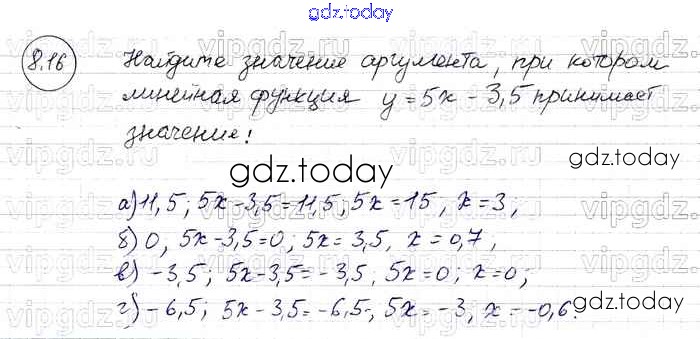 gdz.today
8.16 Найдите значение аргумента, при котором
линейная функция y = 5x - 3,5 принимает
значение:
gdz.today
а) 11,5; 5x - 3,5 = 11,5; 5x = 15, x = 3;
б) 0, 5x - 3,5 = 0; 5x = 3,5, x = 0,7;
в) -3,5; 5x - 3,5 = -3,5, 5x = 0; x = 0;
г) -6,5; 5x - 3,5 = -6,5, 5x = -3, x = -0,6.
gdz.today